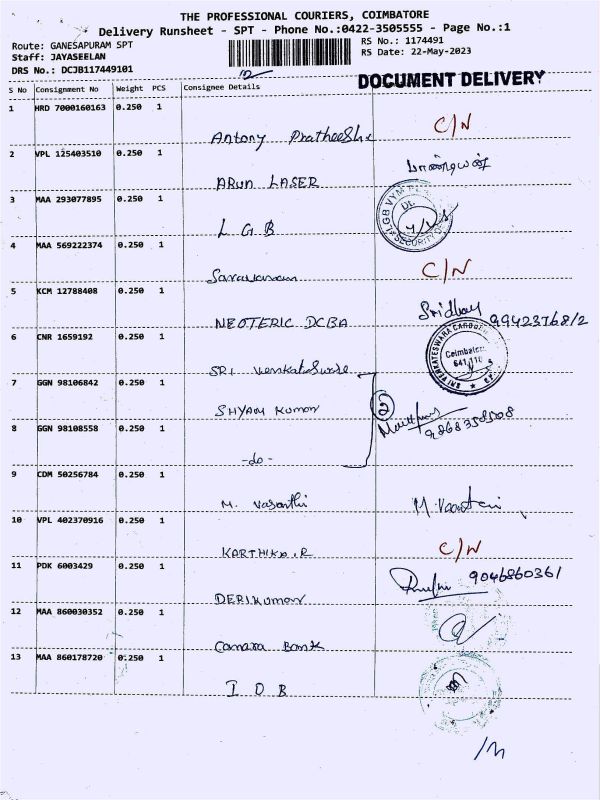 THE PROFESSIONAL COURIERS, COIMBATORE
Delivery Runsheet - SPT - Phone No.:0422-3505555 - Page No.:1
Route: GANESAPURAM SPT
RS No.: 1174491
Staff: JAYASEELAN
RS Date: 22-May-2023
DRS No.: DCJB117449101
DOCUMENT DELIVERY
S No Consignment No Weight PCS Consignee Details
1 HRD 7000160163 0.250 1
Antony Pratheesh C/N
2 VPL 125403510 0.250 1
ARUN LASER பாண்டியன்
3 MAA 293077895 0.250 1
L G B
4 MAA 569222374 0.250 1
Saravanan C/N
5 KCM 12788408 0.250 1
NEOTERIC DCBA Sridhar 99423768/2
6 CNR 1659192 0.250 1
SRI Coimbatore 641 110
7 GGN 98106842 0.250 1
SHYAM Kumar 2
8 GGN 98108558 0.250 1
-do-
9 CDM 50256784 0.250 1
M. Vasanthi M. Vasanthi
10 VPL 402370916 0.250 1
KARTHIKA.R C/N
11 PDK 6003429 0.250 1
9046860361
12 MAA 860030352 0.250 1
Canara Bank
13 MAA 860178720 0.250 1
I O B